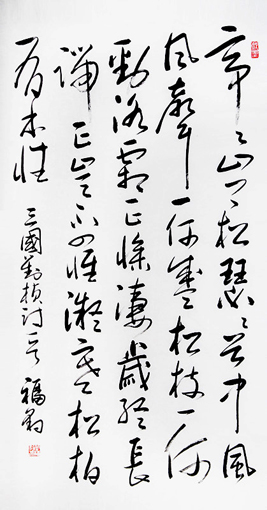 亭亭山上松瑟瑟谷中風
風聲一何盛松枝一何
勁冰霜正慘凄歲終長
端正豈不罹凝寒松柏
有本性
三國劉楨詩一首 福